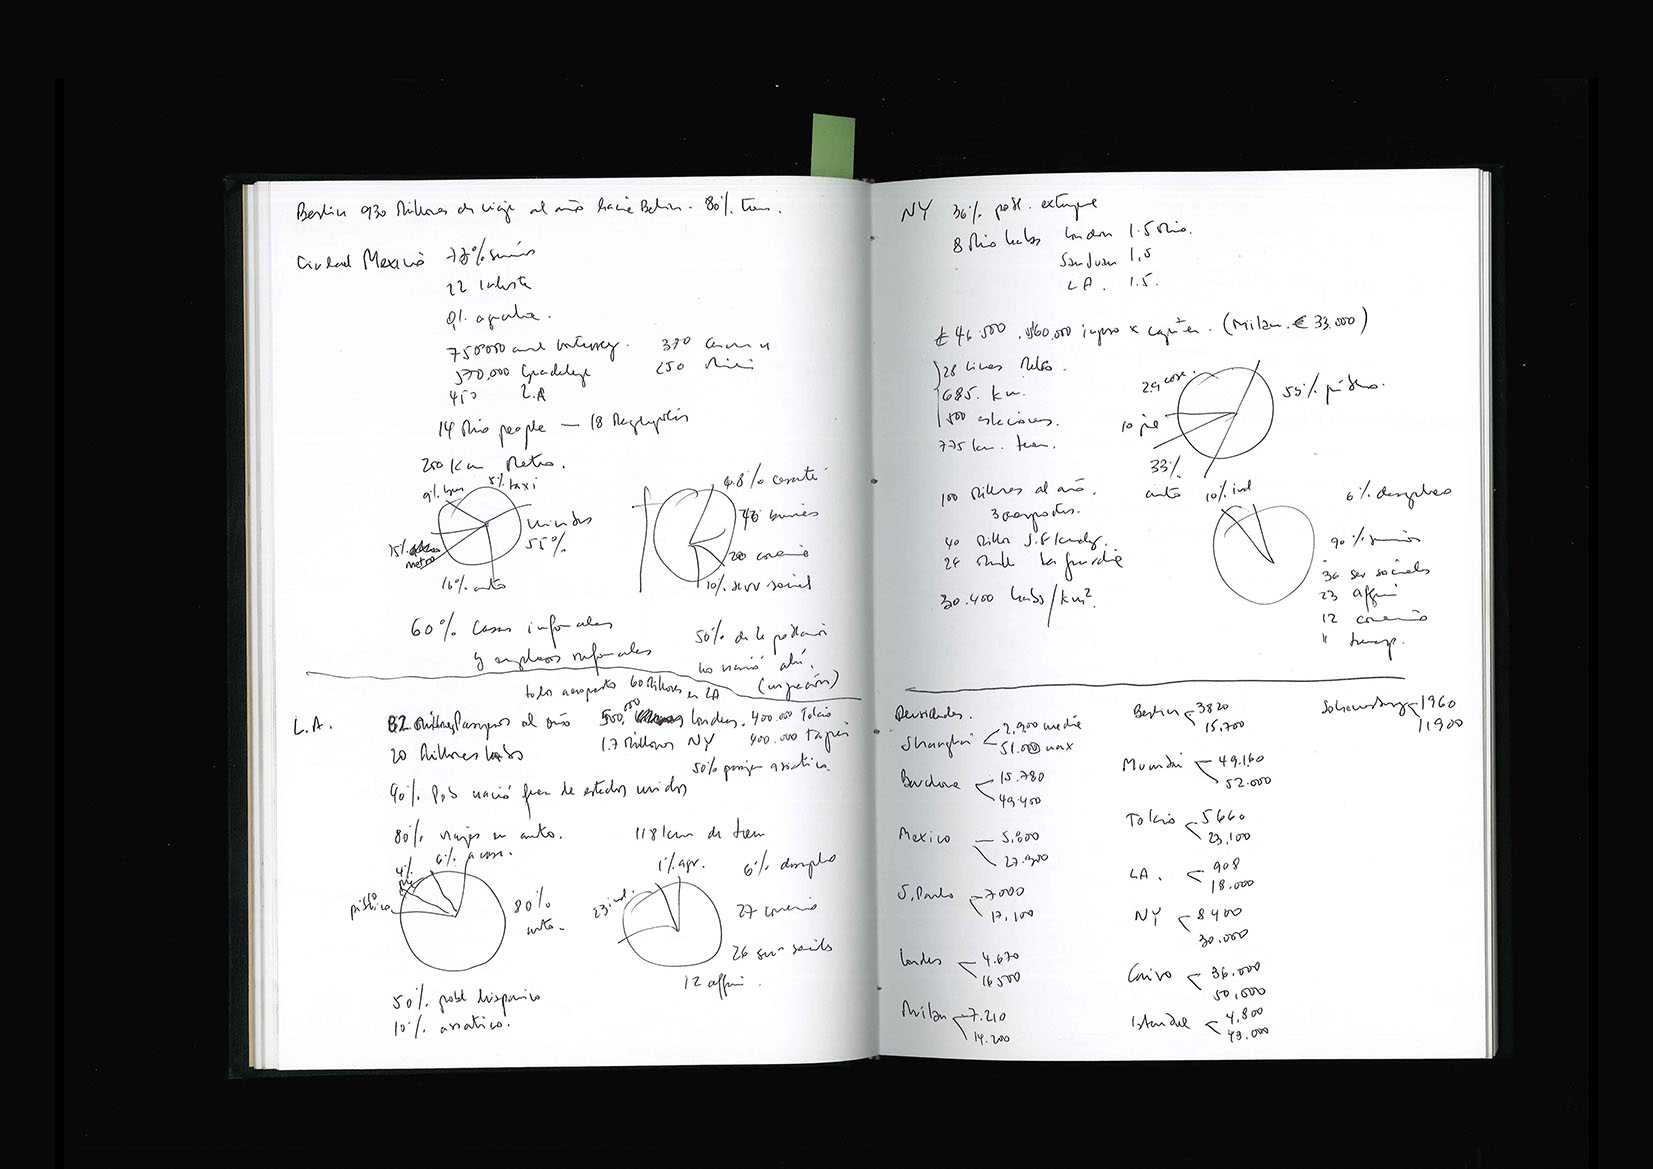 Berlin 930 Millones de viaje al año hacia Berlin - 80% tren.
Ciudad Mexico 77% servicios
22 industria
750.000 Monterrey. 370
370,000 Guadalaja 250
450 L.A
14 Mio people — 18 Megapolis
200 Km Metro.
9% bus 5% taxi
minibus 55%
15% metro
16% auto
4.8% cesante
46
20 comercio
10% serv social
60% Casas informales
y empleos informales
50% de la población
no nació ahí.
(migración)
todos aeropuerto 60 Millones en LA
L.A. 82 Millones Pasajeros al año 500,000 Londres. 400.000 Tokio
20 Millones habs 1.7 Millones NY 400.000 Taipei
50% pasajer asiatico.
40% Pob nació fuera de estados unidos
80% viajes en auto. 118 km de tren
4% pie 6% a casa.
público
80% auto.
1% agr. 6% desempleo
23 ind.
27 comercio
26 serv socials
12 affari.
50% pobl hispanico
10% asiatico.
NY 36% pobl. extranje
8 Mio habs London 1.5 Mio.
San Juan 1,5
LA. 1.5.
€ 46.500 . $60.000 ingreso x capita. (Milan. € 33.000)
28 lineas Metro.
685. km.
500 estaciones.
775 km. tren.
29 casa.
55% público.
10 pie
33% auto
100 Millones al año.
3 aeropuertos.
40 Millon J.F Kendy.
24 Mill La Guardia
30.400 habs/km²
10% ind
6% desempleo
90% servicios
36 ser sociales
23 affari
12 comercio
11 transp.
Densidades.
Shanghai 2,900 media
51.000 max
Barcelona 15.780
49.400
Mexico 5,800
27.300
S. Paulo 7000
17,100
Londres 4.670
16500
Milan 7.210
14.200
Berlin 3820
15,700
Mumbai 49.160
52.000
Tokio 5660
23,100
LA. 908
18.000
NY 8400
30.000
Cairo 36.000
50,000
Istanbul 4.800
43.000
Johannesburg 1960
11900